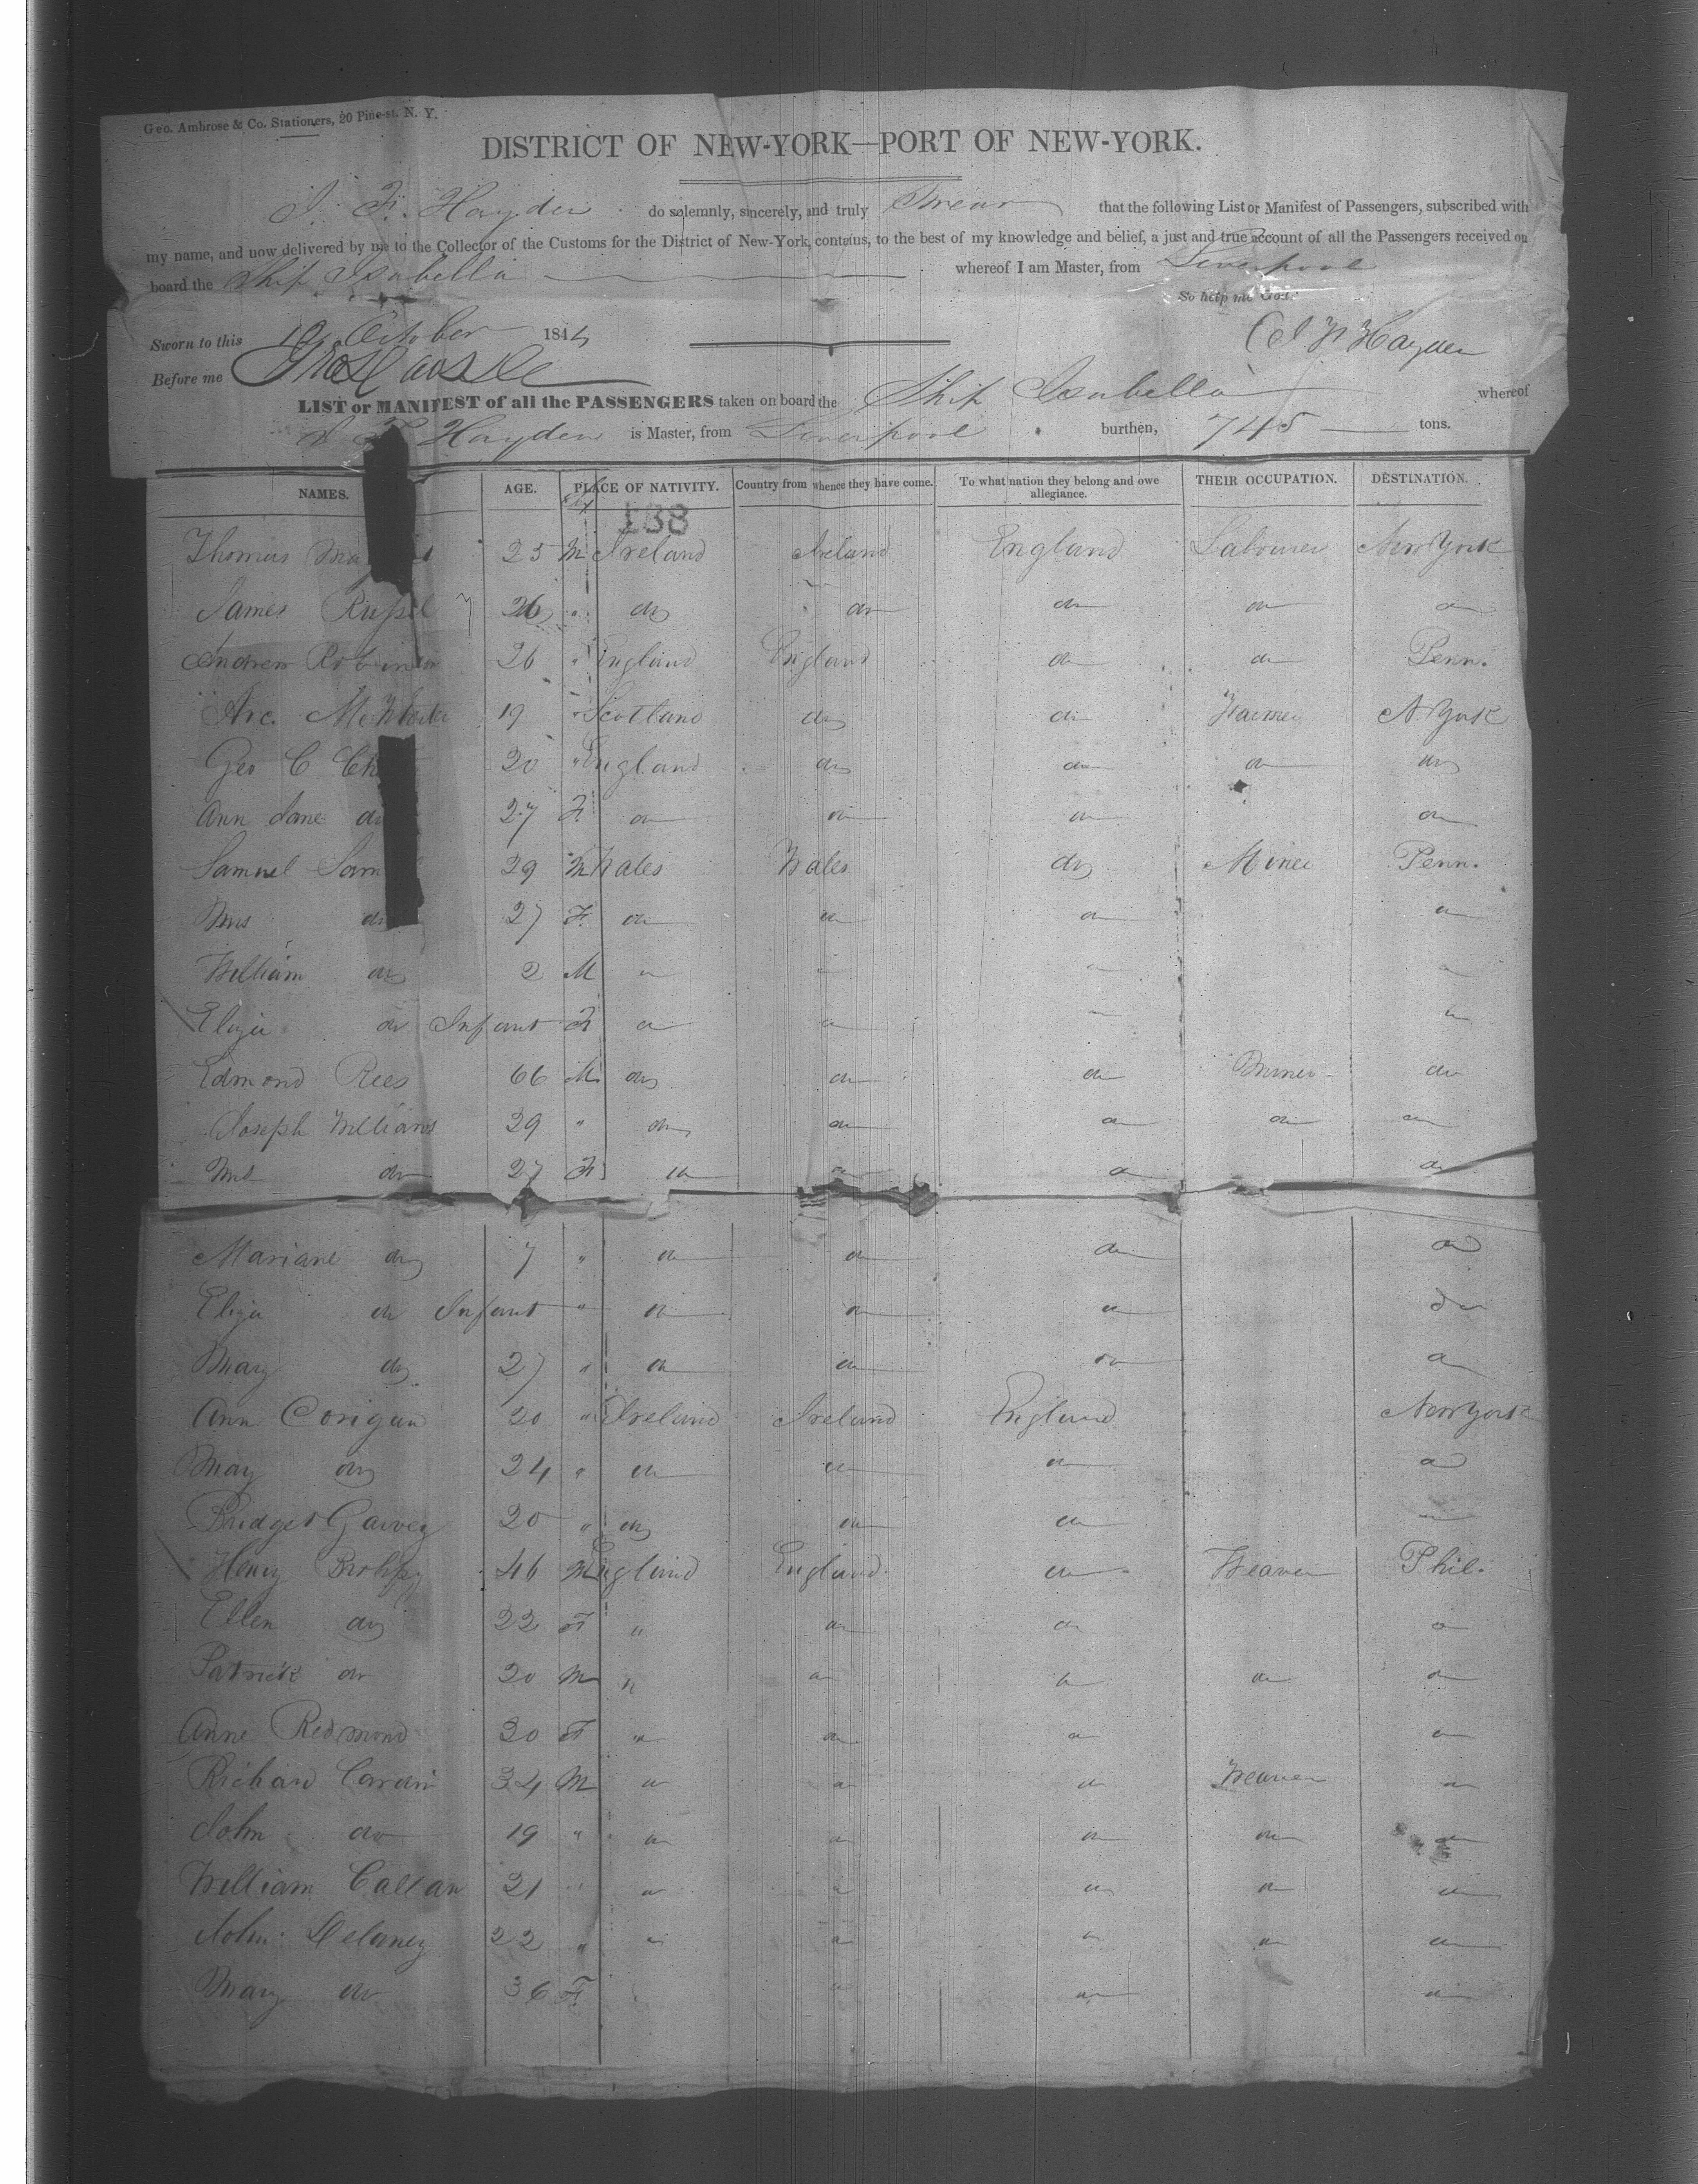 Geo. Ambrose & Co. Stationers, 20 Pine-st. N. Y.
DISTRICT OF NEW-YORK—PORT OF NEW-YORK.
J. F. Hayden do solemnly, sincerely, and truly Swear that the following List or Manifest of Passengers, subscribed with
my name, and now delivered by me to the Collector of the Customs for the District of New-York, contains, to the best of my knowledge and belief, a just and true account of all the Passengers received on
board the Ship Isabella whereof I am Master, from Liverpool
So help me God.
Sworn to this October 184 J F Hayden
Before me
LIST or MANIFEST of all the PASSENGERS taken on board the Ship Isabella whereof
Hayden is Master, from Liverpool burthen, 745 tons.
NAMES. AGE. Sex PLACE OF NATIVITY. Country from whence they have come. To what nation they belong and owe allegiance. THEIR OCCUPATION. DESTINATION.
138
Thomas 25 M Ireland Ireland England Labourer New York
James Russel 26 " do do do do do
Andrew Robinson 26 " England England do do Penn.
Arc. 19 " Scotland do do Farmer N. York
Geo C 20 " England do do do do
Ann Jane do 27 F do do do do
Samuel 29 M Wales Wales do Miner Penn.
Mrs do 27 F do do do do
William do 2 M do do do do
Eliza do Infant F do do do do
Edmond Rees 66 M do do do Miner do
Joseph Williams 29 " do do do do do
Mrs do 27 F do do do do
Mariane do 7 " do do do do
Eliza do Infant " do do do do
Mary do 27 " do do do do
Ann Corigan 20 " Ireland Ireland England New York
Mary do 24 " do do do do
Bridget Garvey 20 " do do do do
Henry 46 M England England do Weaver Phil.
Ellen do 22 F " do do do
Patrick do 20 M " do do do do
Anne Redmond 30 F " do do do
Richard 34 M do do do Weaver do
John do 19 " do do do do do
William Callan 21 " do do do do do
John Delaney 22 " do do do do do
Mary do 36 F do do do